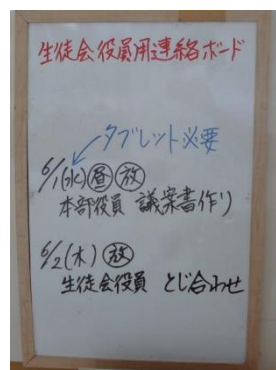 生徒会役員用連絡ボード
タブレット必要
6/1(水)昼放
本部役員 議案書作り
6/2(木)放
生徒会役員 とじ合わせ